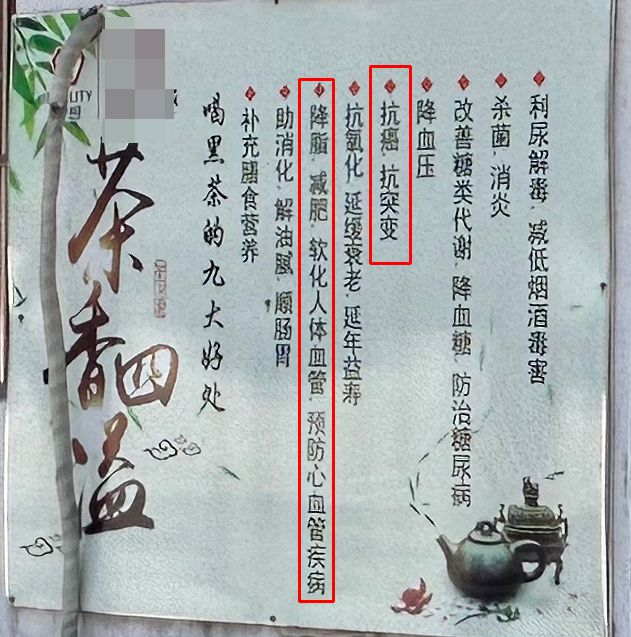 LITY
茶香四溢
喝黑茶的九大好处
补充膳食营养
助消化、解油腻、顺肠胃
降脂、减肥、软化人体血管、预防心血管疾病
抗氧化、延缓衰老、延年益寿
抗癌、抗突变
降血压
改善糖类代谢、降血糖、防治糖尿病
杀菌、消炎
利尿解毒、减低烟酒毒害